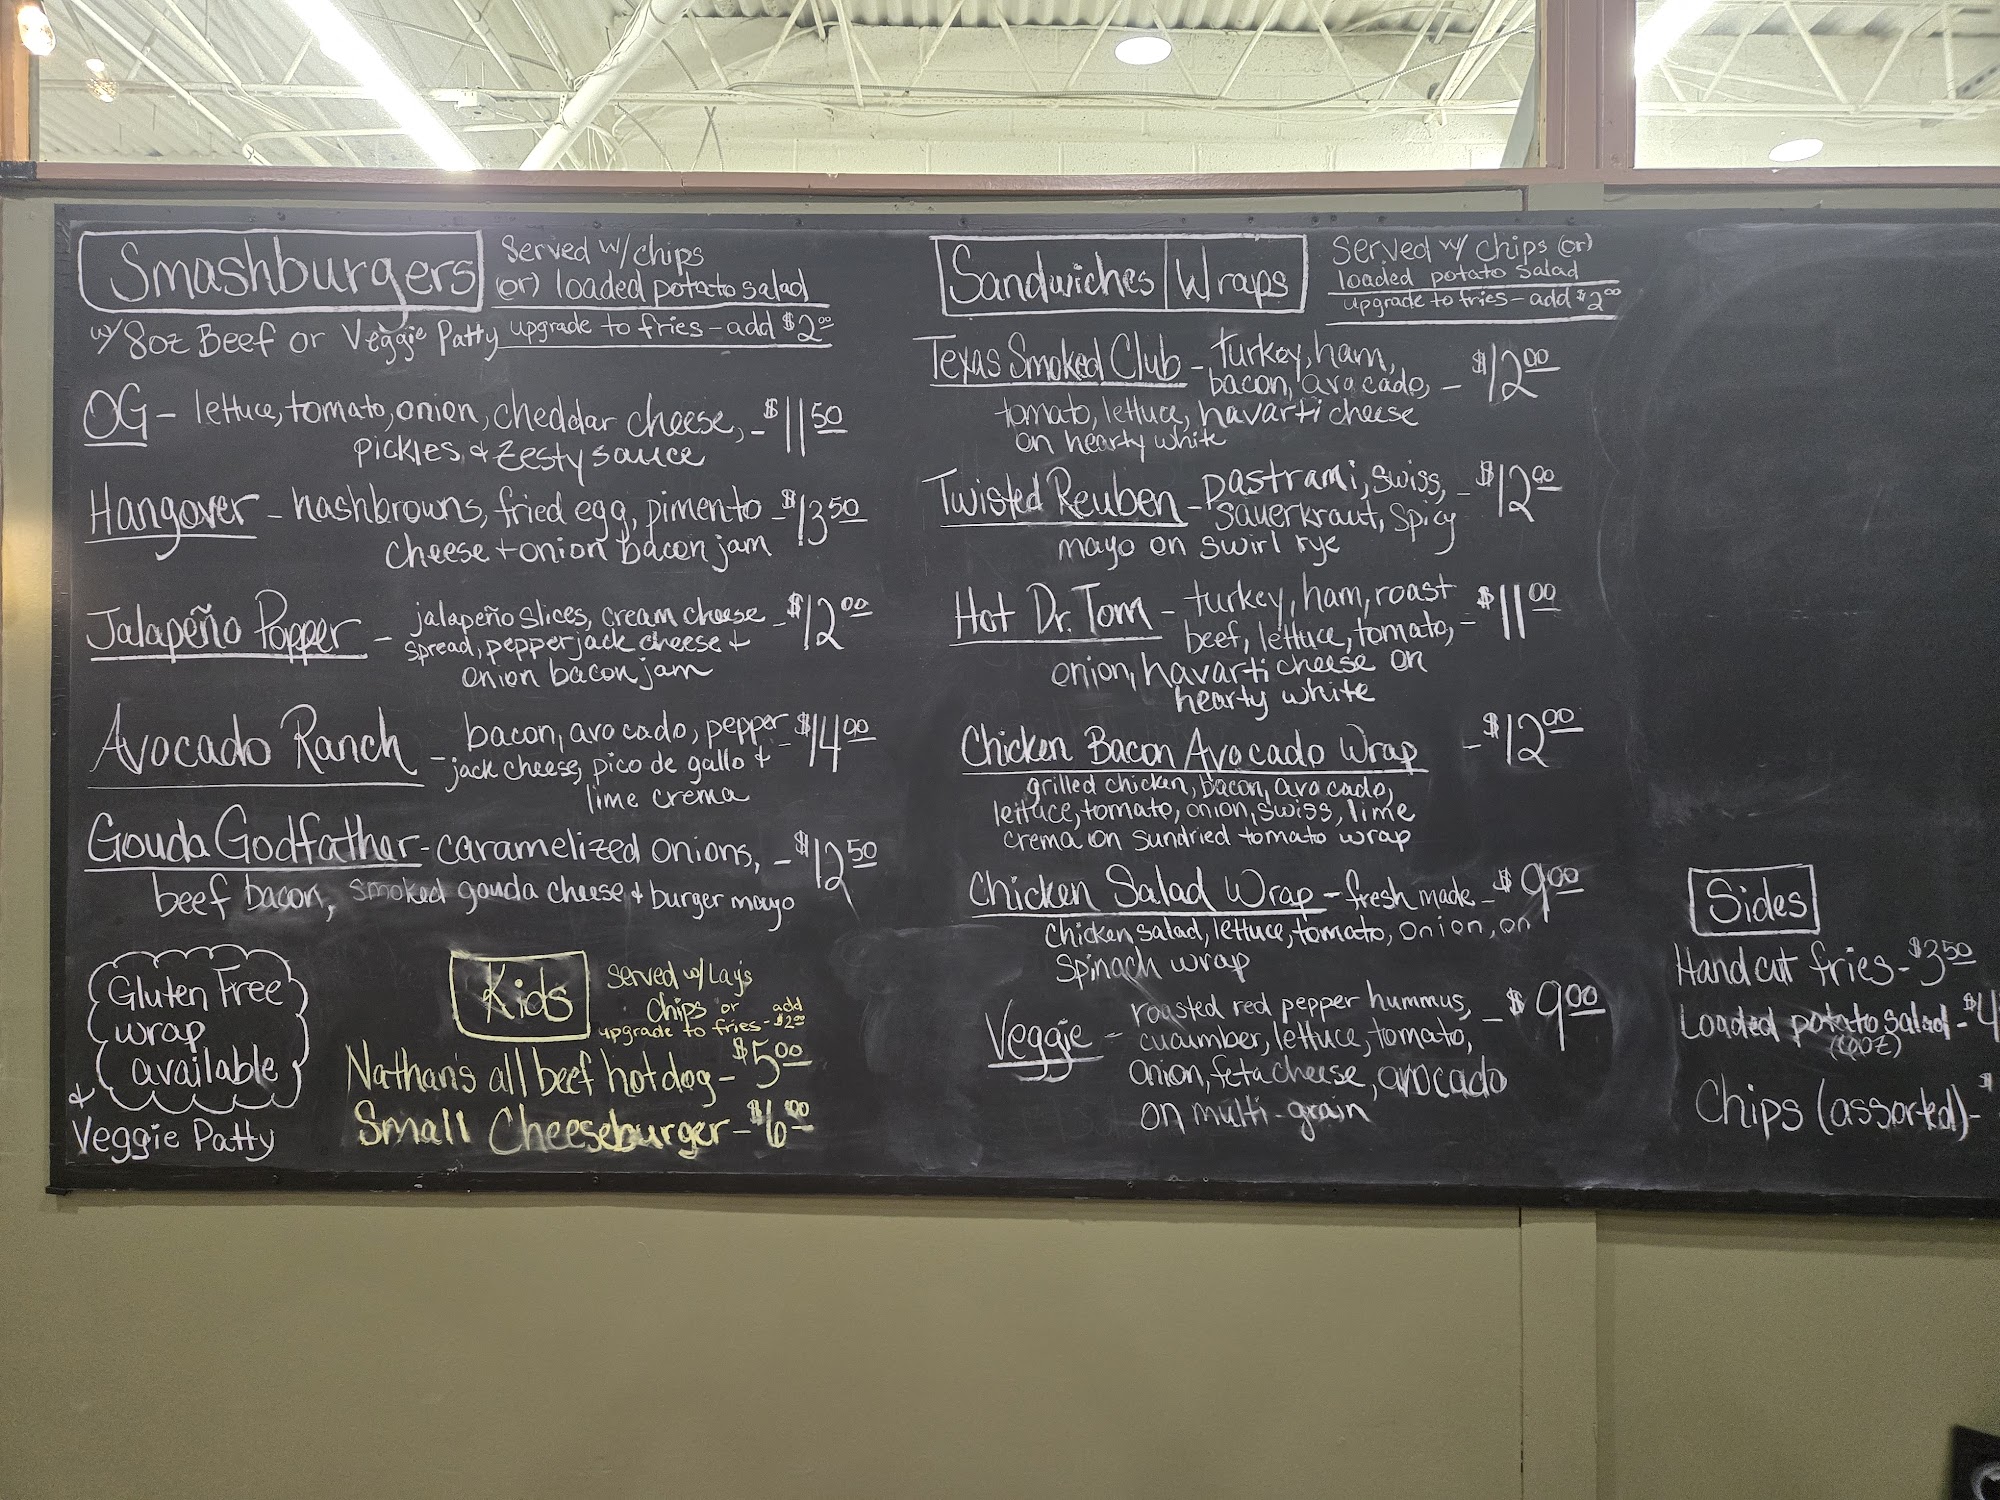 Smashburgers
Served w/ chips
(or) loaded potato salad
upgrade to fries - add $2.00
w/ 8oz Beef or Veggie Patty
OG - lettuce, tomato, onion, cheddar cheese, - $11.50
pickles & zesty sauce
Hangover - hashbrowns, fried egg, pimento - $13.50
cheese + onion bacon jam
Jalapeño Popper - jalapeño slices, cream cheese - $12.00
spread, pepperjack cheese +
onion bacon jam
Avocado Ranch - bacon, avocado, pepper - $14.00
jack cheese, pico de gallo +
lime crema
Gouda Godfather - caramelized onions, - $12.50
beef bacon, smoked gouda cheese + burger mayo
Gluten Free
wrap
available
&
Veggie Patty
Kids
Served w/ Lay's
Chips or
upgrade to fries - add $2.00
Nathan's all beef hotdog - $5.00
Small Cheeseburger - $6.00
Sandwiches | Wraps
Served w/ chips (or)
loaded potato salad
upgrade to fries - add $2.00
Texas Smoked Club - turkey, ham,
bacon, avocado, - $12.00
tomato, lettuce, havarti cheese
on hearty white
Twisted Reuben - pastrami, swiss, - $12.00
sauerkraut, spicy
mayo on swirl rye
Hot Dr. Tom - turkey, ham, roast
beef, lettuce, tomato, - $11.00
onion, havarti cheese on
hearty white
Chicken Bacon Avocado Wrap - $12.00
grilled chicken, bacon, avocado,
lettuce, tomato, onion, swiss, lime
crema on sundried tomato wrap
Chicken Salad Wrap - fresh made - $9.00
chicken salad, lettuce, tomato, onion, on
spinach wrap
Veggie - roasted red pepper hummus, - $9.00
cucumber, lettuce, tomato,
onion, feta cheese, avocado
on multi-grain
Sides
Hand cut fries - $3.50
Loaded potato salad - $4
Chips (assorted) - $